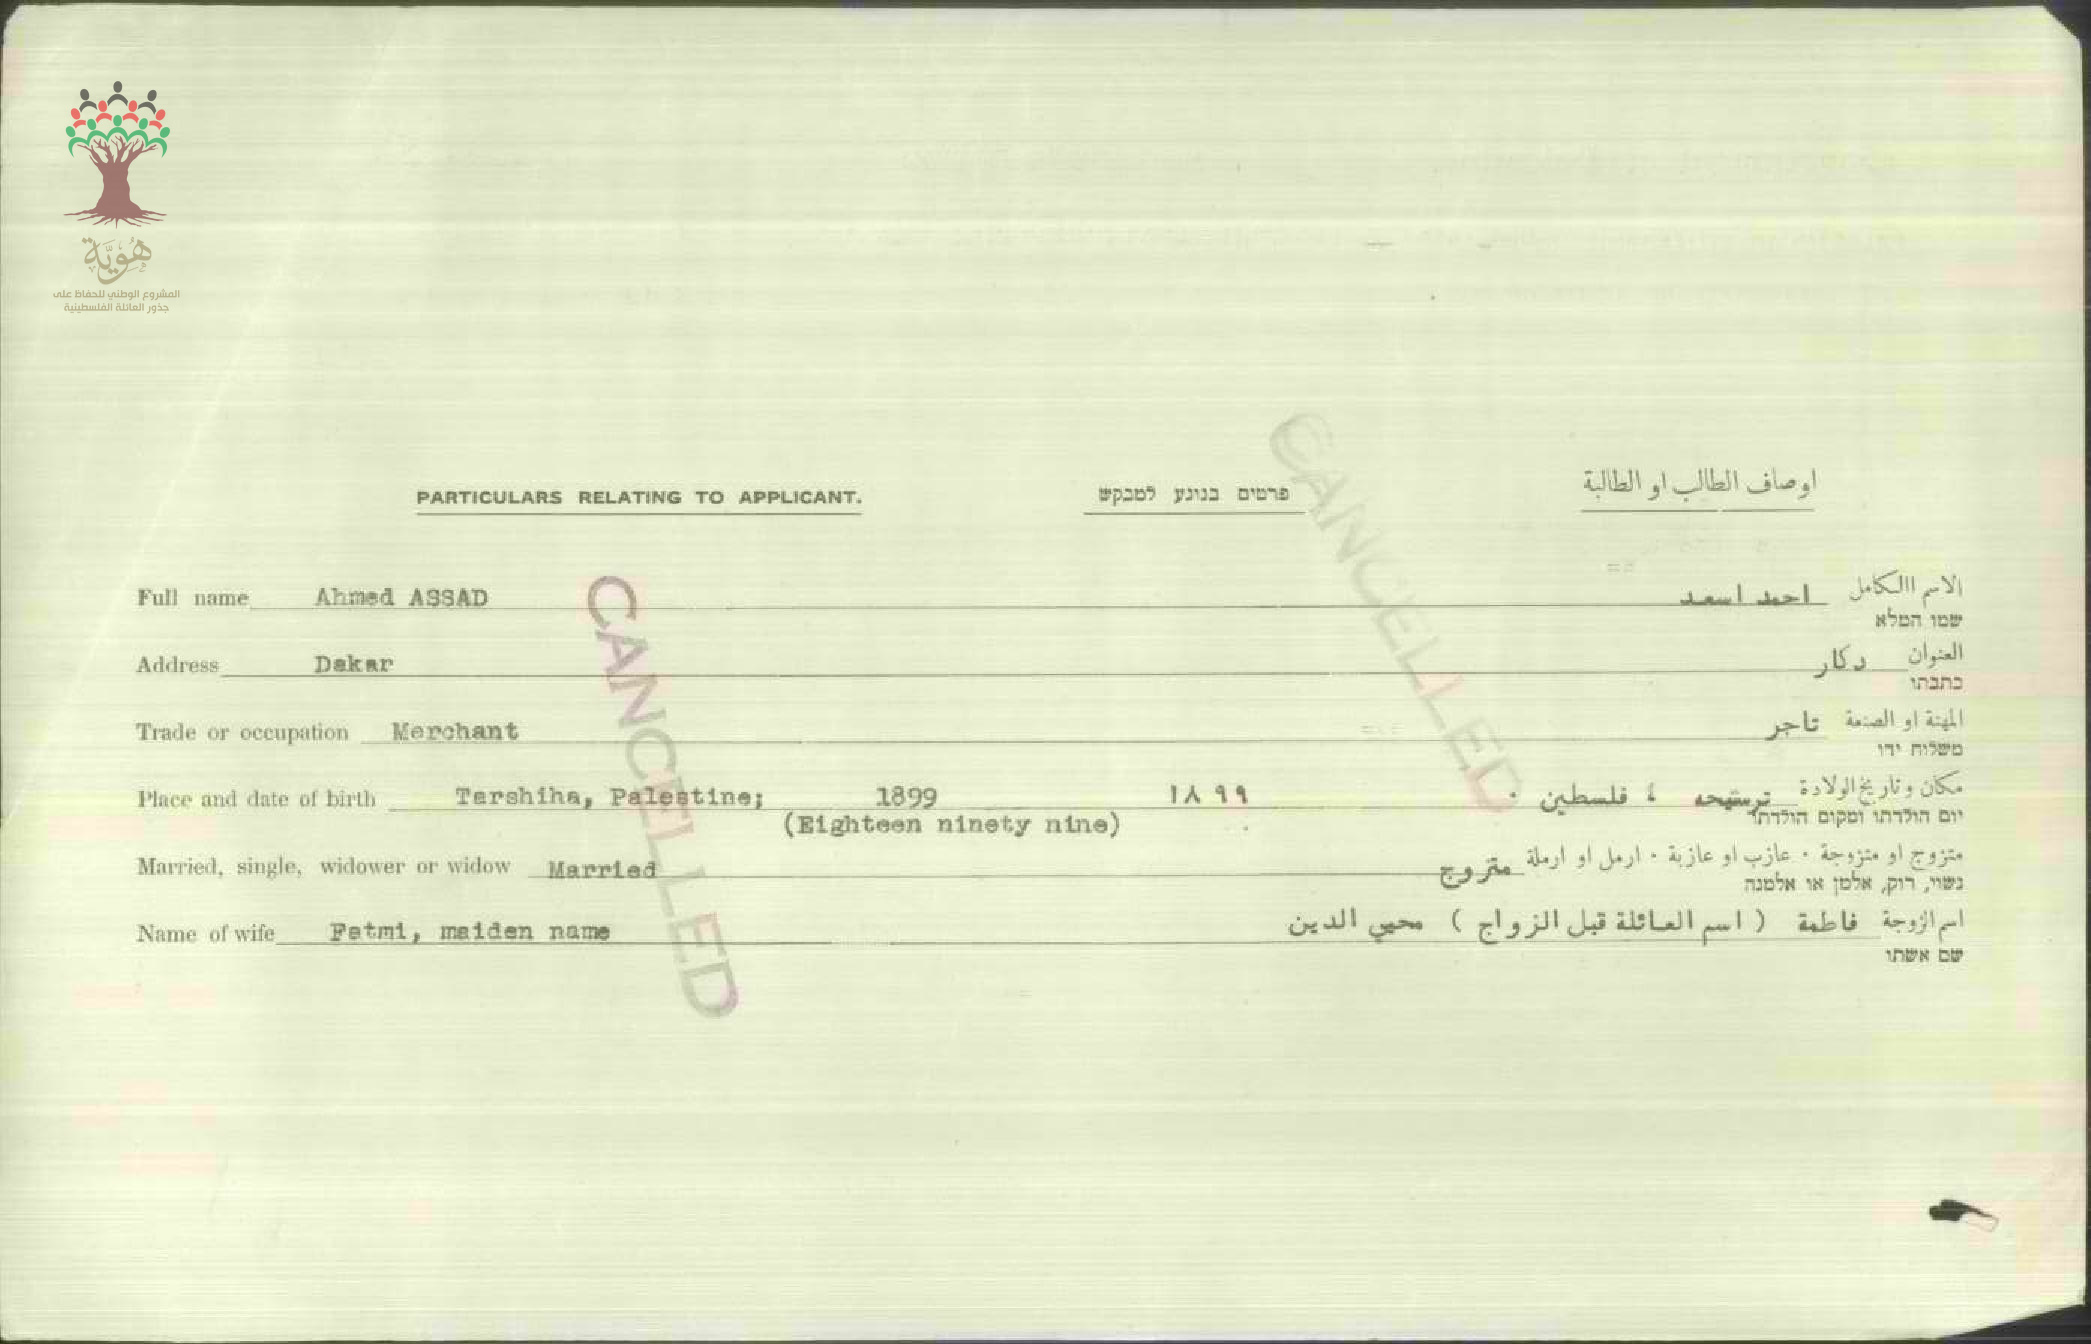 هُوِيَّة
المشروع الوطني للحفاظ على
جذور العائلة الفلسطينية
PARTICULARS RELATING TO APPLICANT. פרטים בנוגע למבקש اوصاف الطالب او الطالبة
Full name Ahmed ASSAD احمد اسعد الاسم االكامل
שמו המלא
Address Dakar دكار العنوان
כתבתו
Trade or occupation Merchant تاجر المهنة او الصنعة
משלוח ידו
Place and date of birth Tershiha, Palestine; 1899 ١٨٩٩ ترشيحه ؛ فلسطين . مكان وتاريخ الولادة
(Eighteen ninety nine) יום הולדתו ומקום הולדתו
Married, single, widower or widow Married متزوج متزوج او متزوجة . عازب او عازبة . ارمل او ارملة
נשוי, רוק, אלמן או אלמנה
Name of wife Fatmi, maiden name فاطمة ( اسم العائلة قبل الزواج ) محيي الدين اسم الزوجة
שם אשתו
CANCELLED
CANCELLED